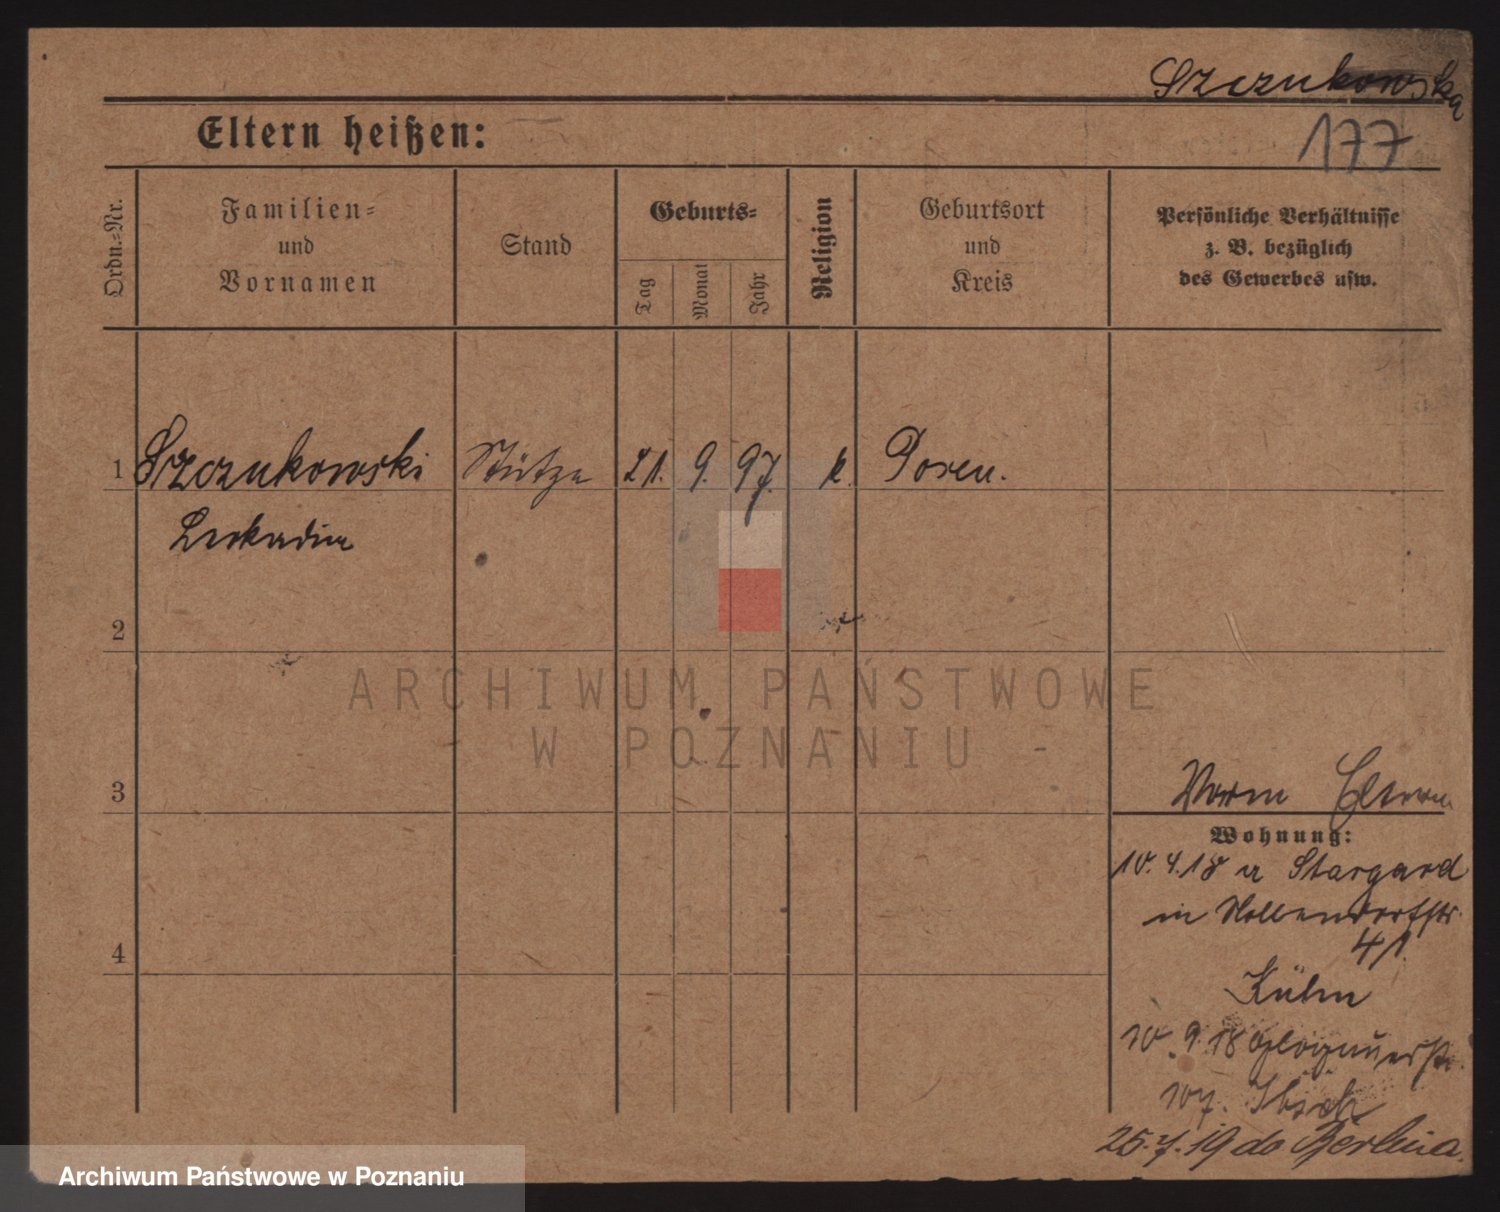 Szczukowska
Eltern heißen:
177
Ordn.=Nr.
Familien=
und
Vornamen
Stand
Geburts=
Tag
Monat
Jahr
Religion
Geburtsort
und
Kreis
Persönliche Verhältnisse
z. B. bezüglich
des Gewerbes usw.
1 Szczukowski Stütze 21. 9. 97. k. Posen.
Leokadia
2
ARCHIWUM PAŃSTWOWE
W POZNANIU -
3
Eltern
Wohnung:
10.4.18 a Stargard
in
41.
10.9.18 Glogauerstr.
107.
25.7.19 do Berlina.
4
Archiwum Państwowe w Poznaniu